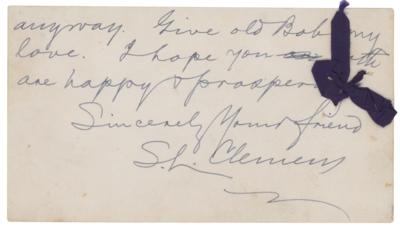 anyway. Give old Bob my
love. I hope you
are happy & prosper
Sincerely Your friend
S. L. Clemens